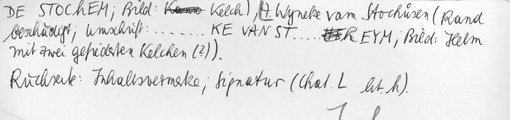 DE STOCHEM; Bild: Kelch), 7. Wyneke vam Stochusen (Rand
beschädigt, Umschrift: ....... KE VAN ST.....EYM; Bild: Helm
mit zwei gefiedsten Kelchen (?)).
Rückseite: Inhaltsvermerke; Signatur (Chat. L lit. h).